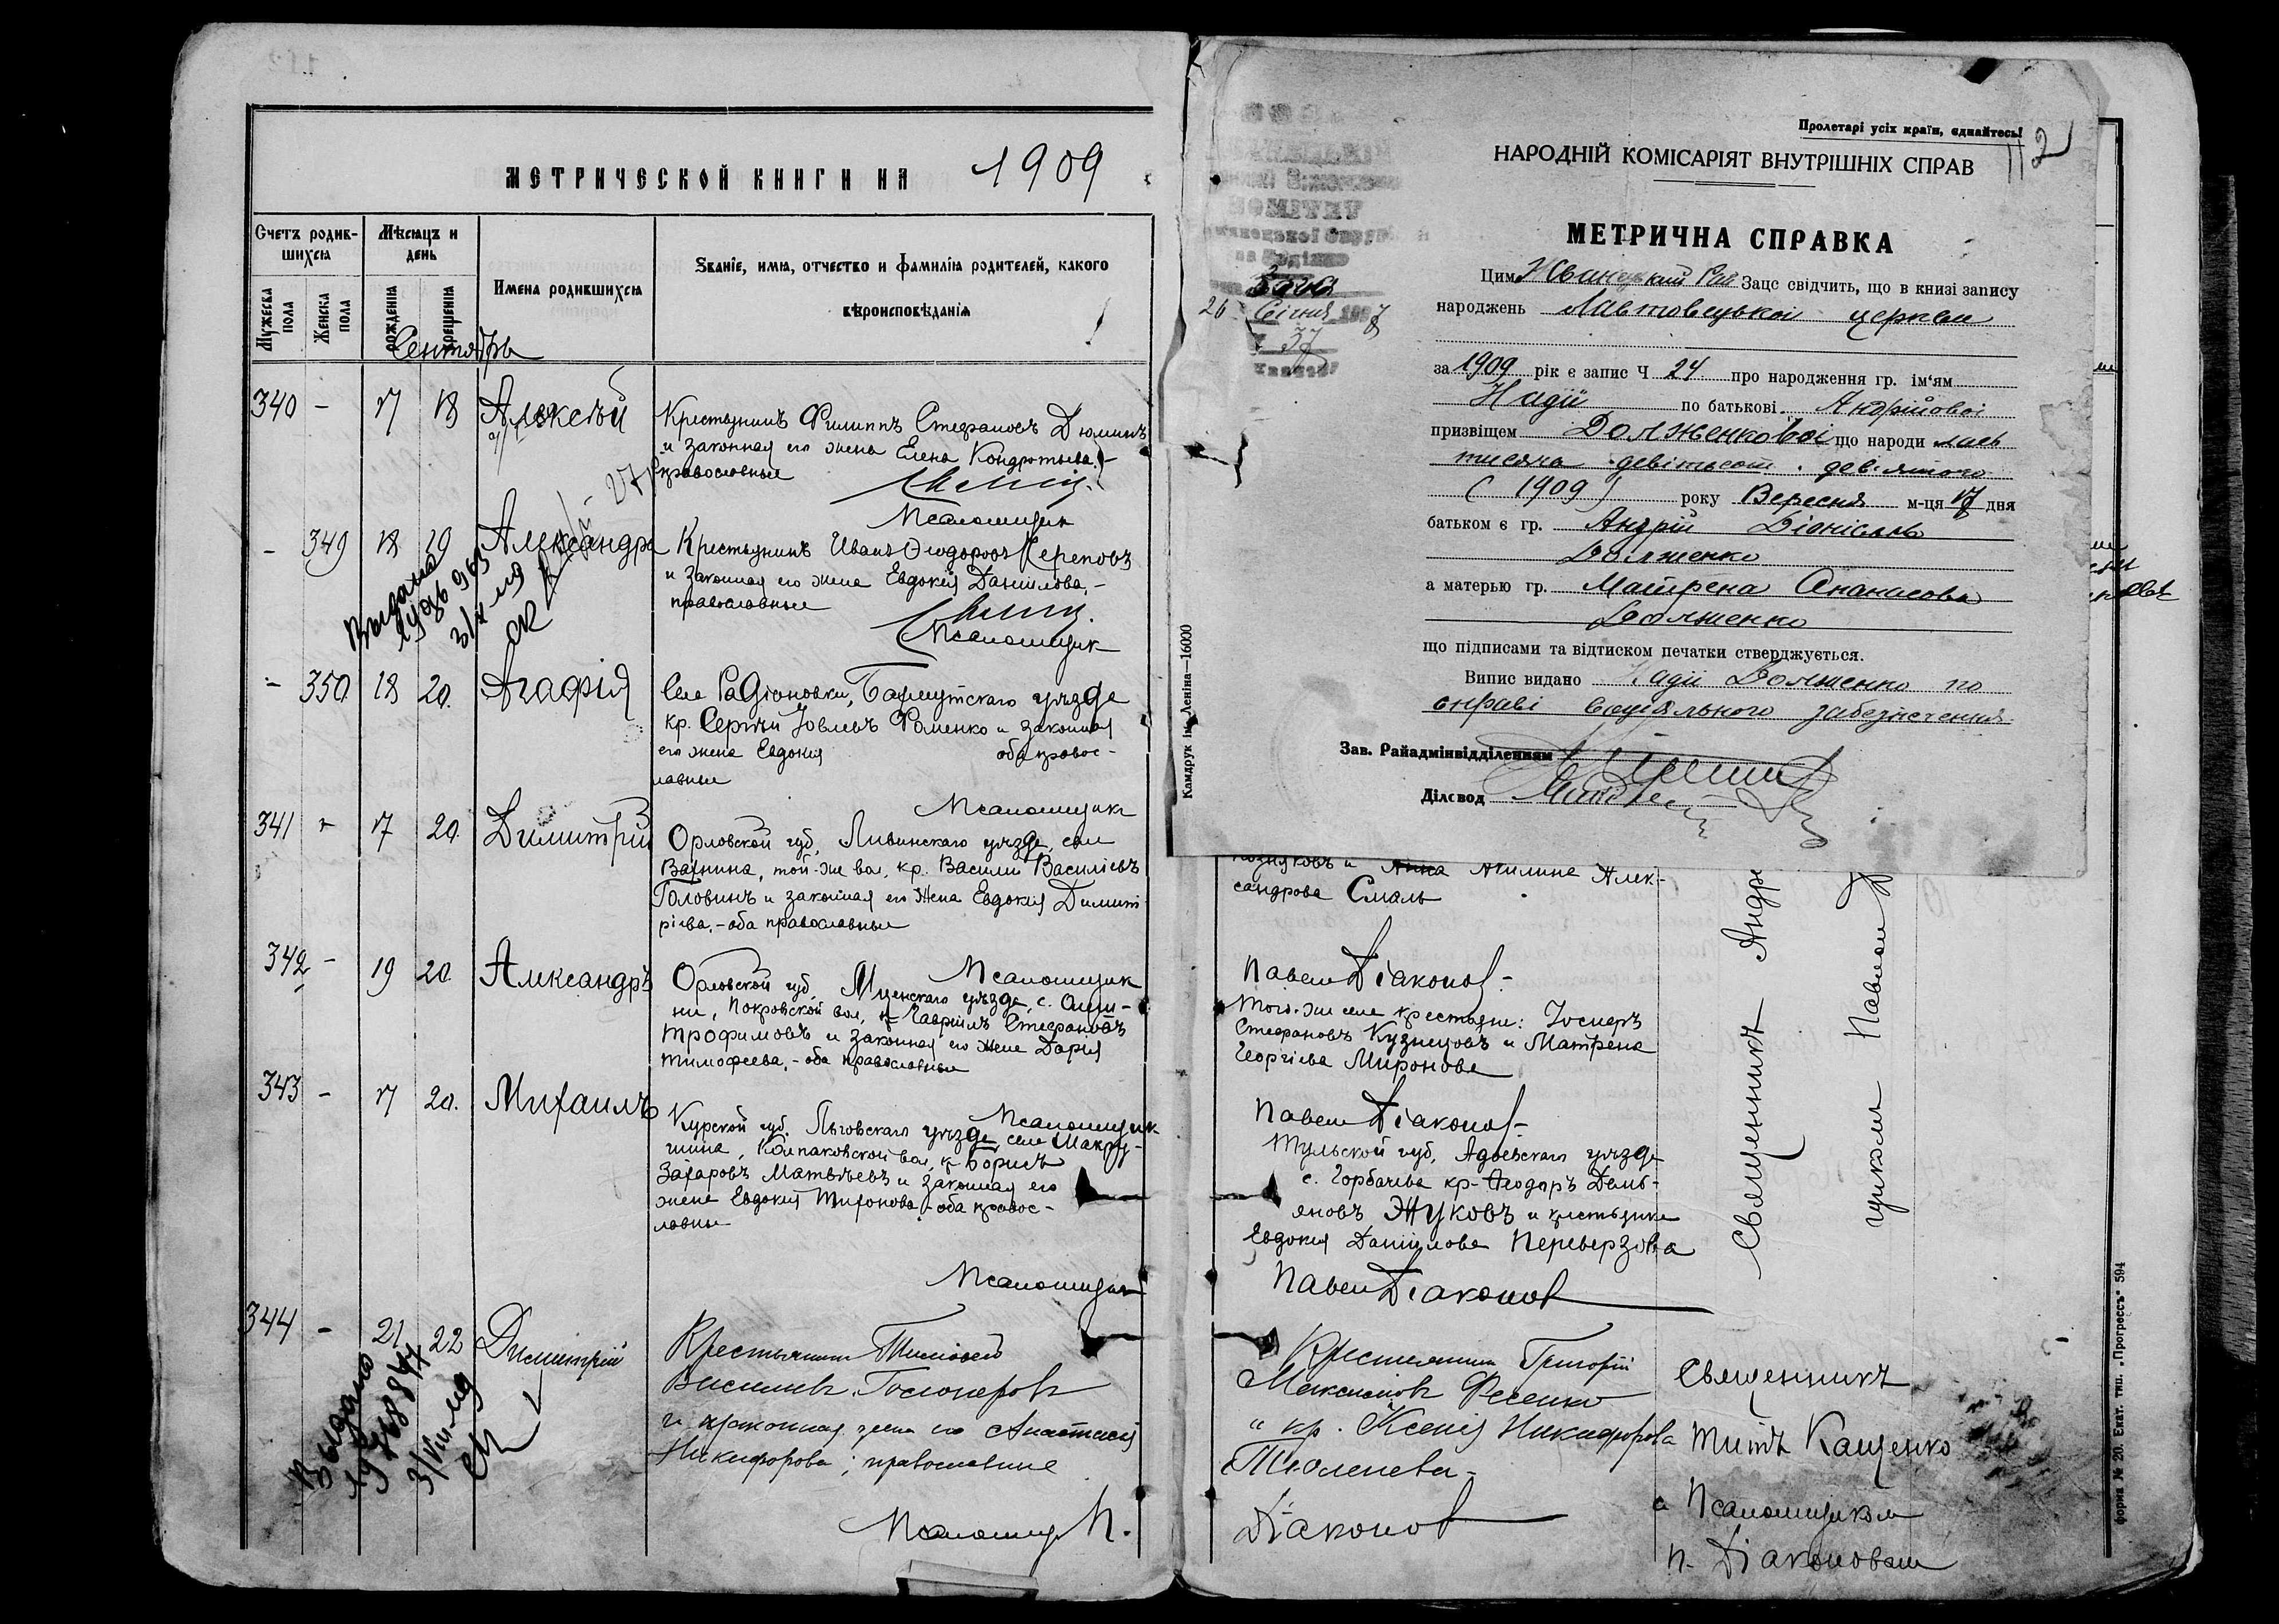 МЕТРИЧЕСКОЙ КНИГИ НА 1909
Счетъ родив-
шихся
Мужеска
пола
Женска
пола
Мѣсяцъ и
день
рожденія
крещенія
Имена родившихся
Званіе, имя, отчество и фамилія родителей, какого
вѣроисповѣданія
Сентябрь
340 - 17 18 Алексѣй
Крестьянинъ Филиппъ Стефановъ Дюминъ
и законная его жена Елена Кондратьева,-
православные
Псаломщик
- 349 18 19 Александра
Крестьянинъ Иванъ Ѳеодоровъ Череповъ
и законная его жена Евдокія Даніилова,-
православные
Псаломщик
Выдано
- 350 18 20. Агафія
Села Радіоновки, Бахмутскаго уѣзда
кр. Сергѣй Іовлевъ Фоменко и законная
его жена Евдокія оба правос-
лавные
Псаломщикъ
341 - 17 20. Димитрій
Орловской губ, Ливинскаго уѣзда, села
Вахнина, той-же вол, кр. Василій Василіевъ
Головинъ и законная его жена Евдокія Димит-
ріева,-оба православные
Псаломщик
342 - 19 20. Александръ
Орловской губ, Мценскаго уѣзда, с.
Покровской вол, кр Гавріилъ Стефановъ
Трофимовъ и законная его жена Дарія
Тимофеева,-оба православные
Псаломщик
343 - 17 20. Михаилъ
Курской губ. Льговскаго уѣзда, села
Колпаковской вол, кр Борисъ
Захаровъ Матвѣевъ и законная его
жена Евдокія Тихонова,-оба правос-
лавные
Псаломщик
344 - 21 22 Димитрій
Крестьянинъ Тимофей
Василіевъ
и законная жена его Анастасія
Никифорова; православные
Псаломщ П.
Выдано
Пролетарі усіх країн, єднайтесь!
112
НАРОДНІЙ КОМІСАРІЯТ ВНУТРІШНІХ СПРАВ
МЕТРИЧНА СПРАВКА
Цим Званецький Рай Загс свідчить, що в книзі запису
народжень Лавтовецької церкви
за 1909 рік є запис Ч 24 про народження гр. ім'ям
Надії по батькові Андрійової
призвіщем Долженкової що народилась
тисяча девітьсот дев'ятого
(1909) року Вересня м-ця 17 дня
батьком є гр. Андрій Діонісьєв
Долженко
а матерью гр. Матрена Ананасова
Долженко
що підписами та відтиском печатки стверджується.
Випис видано Надії Долженко по
справі соціяльного забезпечення
Зав. Райадмінвідділенням
Діловод
КОМІТЕТ
26 Січня
37
Камдрук ім. Леніна—16000
Акилина Алек-
сандрова Смаль
Павел Діаконов-
Того-же села крестьяне: Іосифъ
Стефановъ Кузнецовъ и Матрена
Георгіева Миронова
Павел Діаконов-
Тульской губ, Адоевскаго уѣзда
с. Горбачева кр- Ѳеодоръ Демь-
яновъ Жуковъ и крестьянка
Евдокія Даніилова Переверзова
Павел Діаконов
Крестьянинъ Григорій
Максимовъ Фесенко
и кр. Ксенія Никифорова
Тюленева-
Діаконов
Священникъ
Священникъ
Титъ Кащенко
с Псаломщиком
П. Діаконовым
Форма № 20. Екат. тип. „Прогрессъ" 594